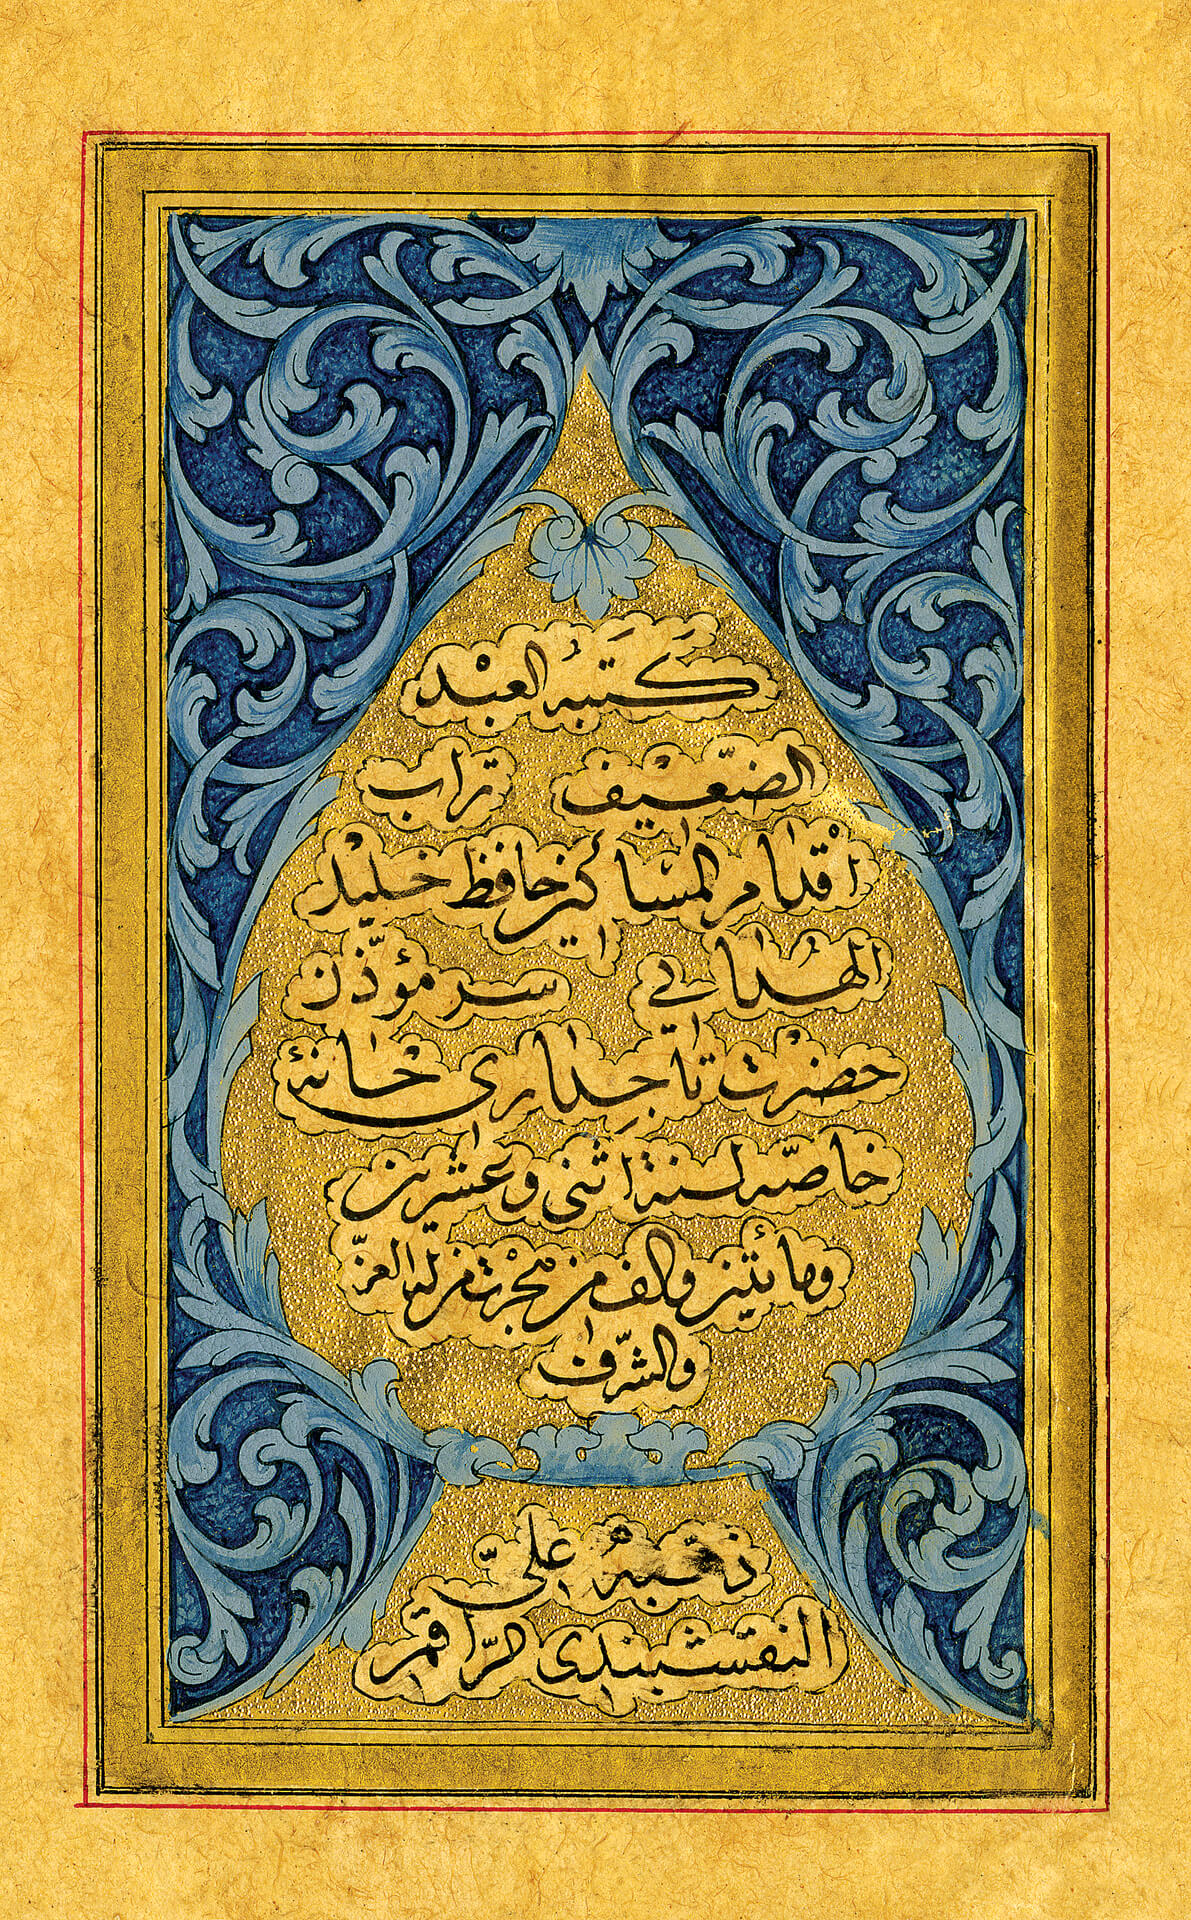 كَتَبَهُ العبْد
الضّعيْف تراب
اقدام المسَاكين حافظ خليْد
الهُدايي سر مؤذّن
حضرْت تاجداری خَانهٔ
خاصّه لسنة اثنی وعشرين
ومأتين والف من هجرْت من له العزّ
والشّرف
ذهّبهُ علی
النقشبندی الرّاقم